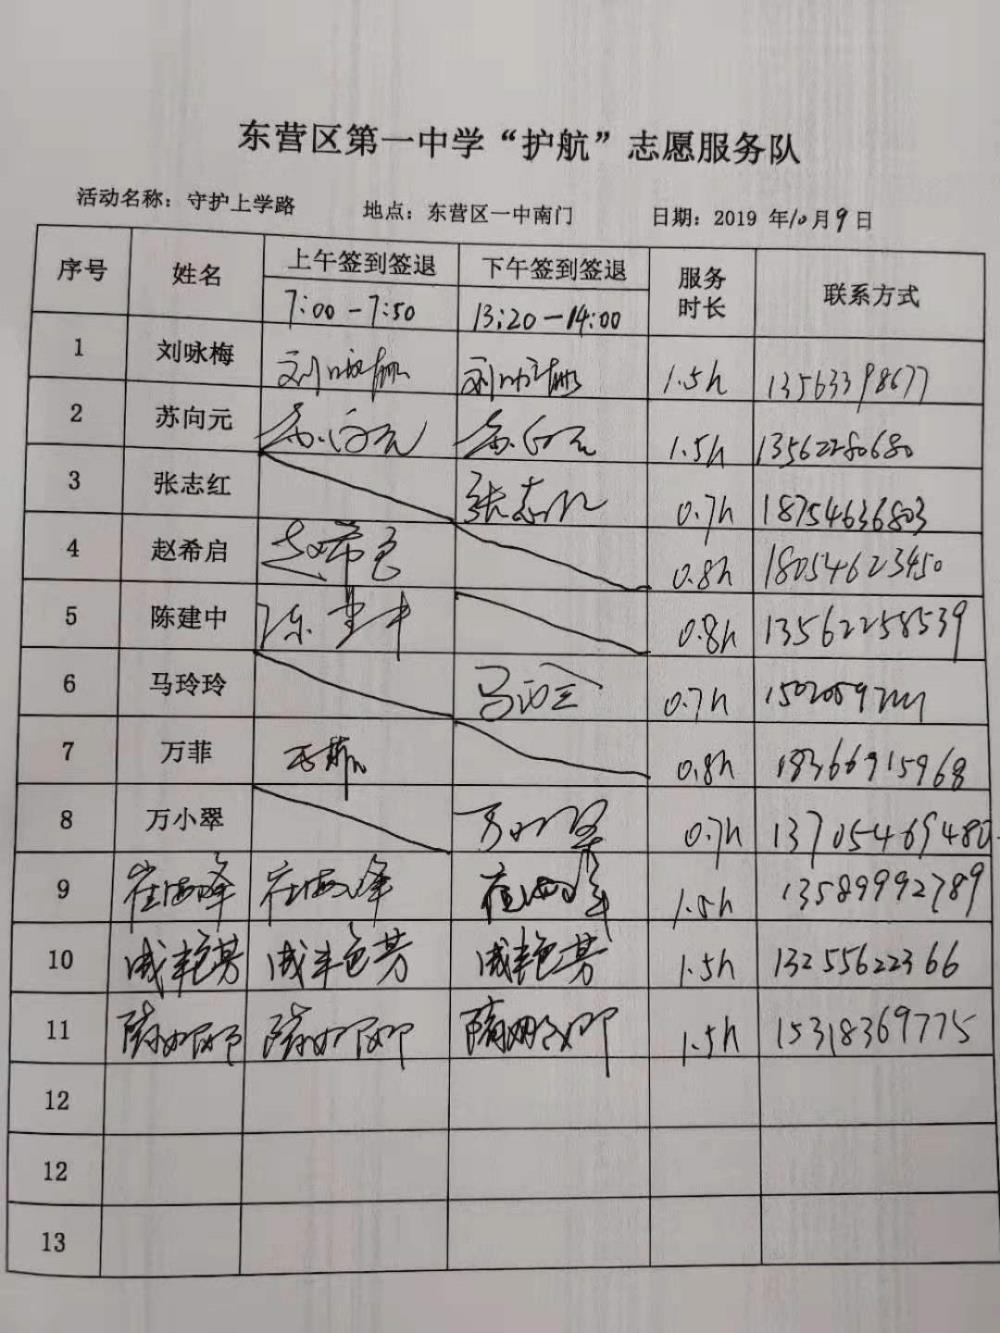 东营区第一中学“护航”志愿服务队
活动名称：守护上学路 地点：东营区一中南门 日期：2019 年10月9日
序号 姓名 上午签到签退 下午签到签退 服务时长 联系方式
7:00-7:50 13:20-14:00
1 刘咏梅 刘咏梅 刘咏梅 1.5h 13563398677
2 苏向元 苏向元 苏向元 1.5h 13562280680
3 张志红 张志红 0.7h 18754636803
4 赵希启 赵希启 0.8h 18054623450
5 陈建中 陈建中 0.8h 13562258539
6 马玲玲 马玲玲 0.7h
7 万菲 万菲 0.8h 18366915968
8 万小翠 万小翠 0.7h 13705469480
9 崔海峰 崔海峰 崔海峰 1.5h 13589992789
10 成艳芳 成艳芳 成艳芳 1.5h 13255622366
11 1.5h 15318369775
12
12
13